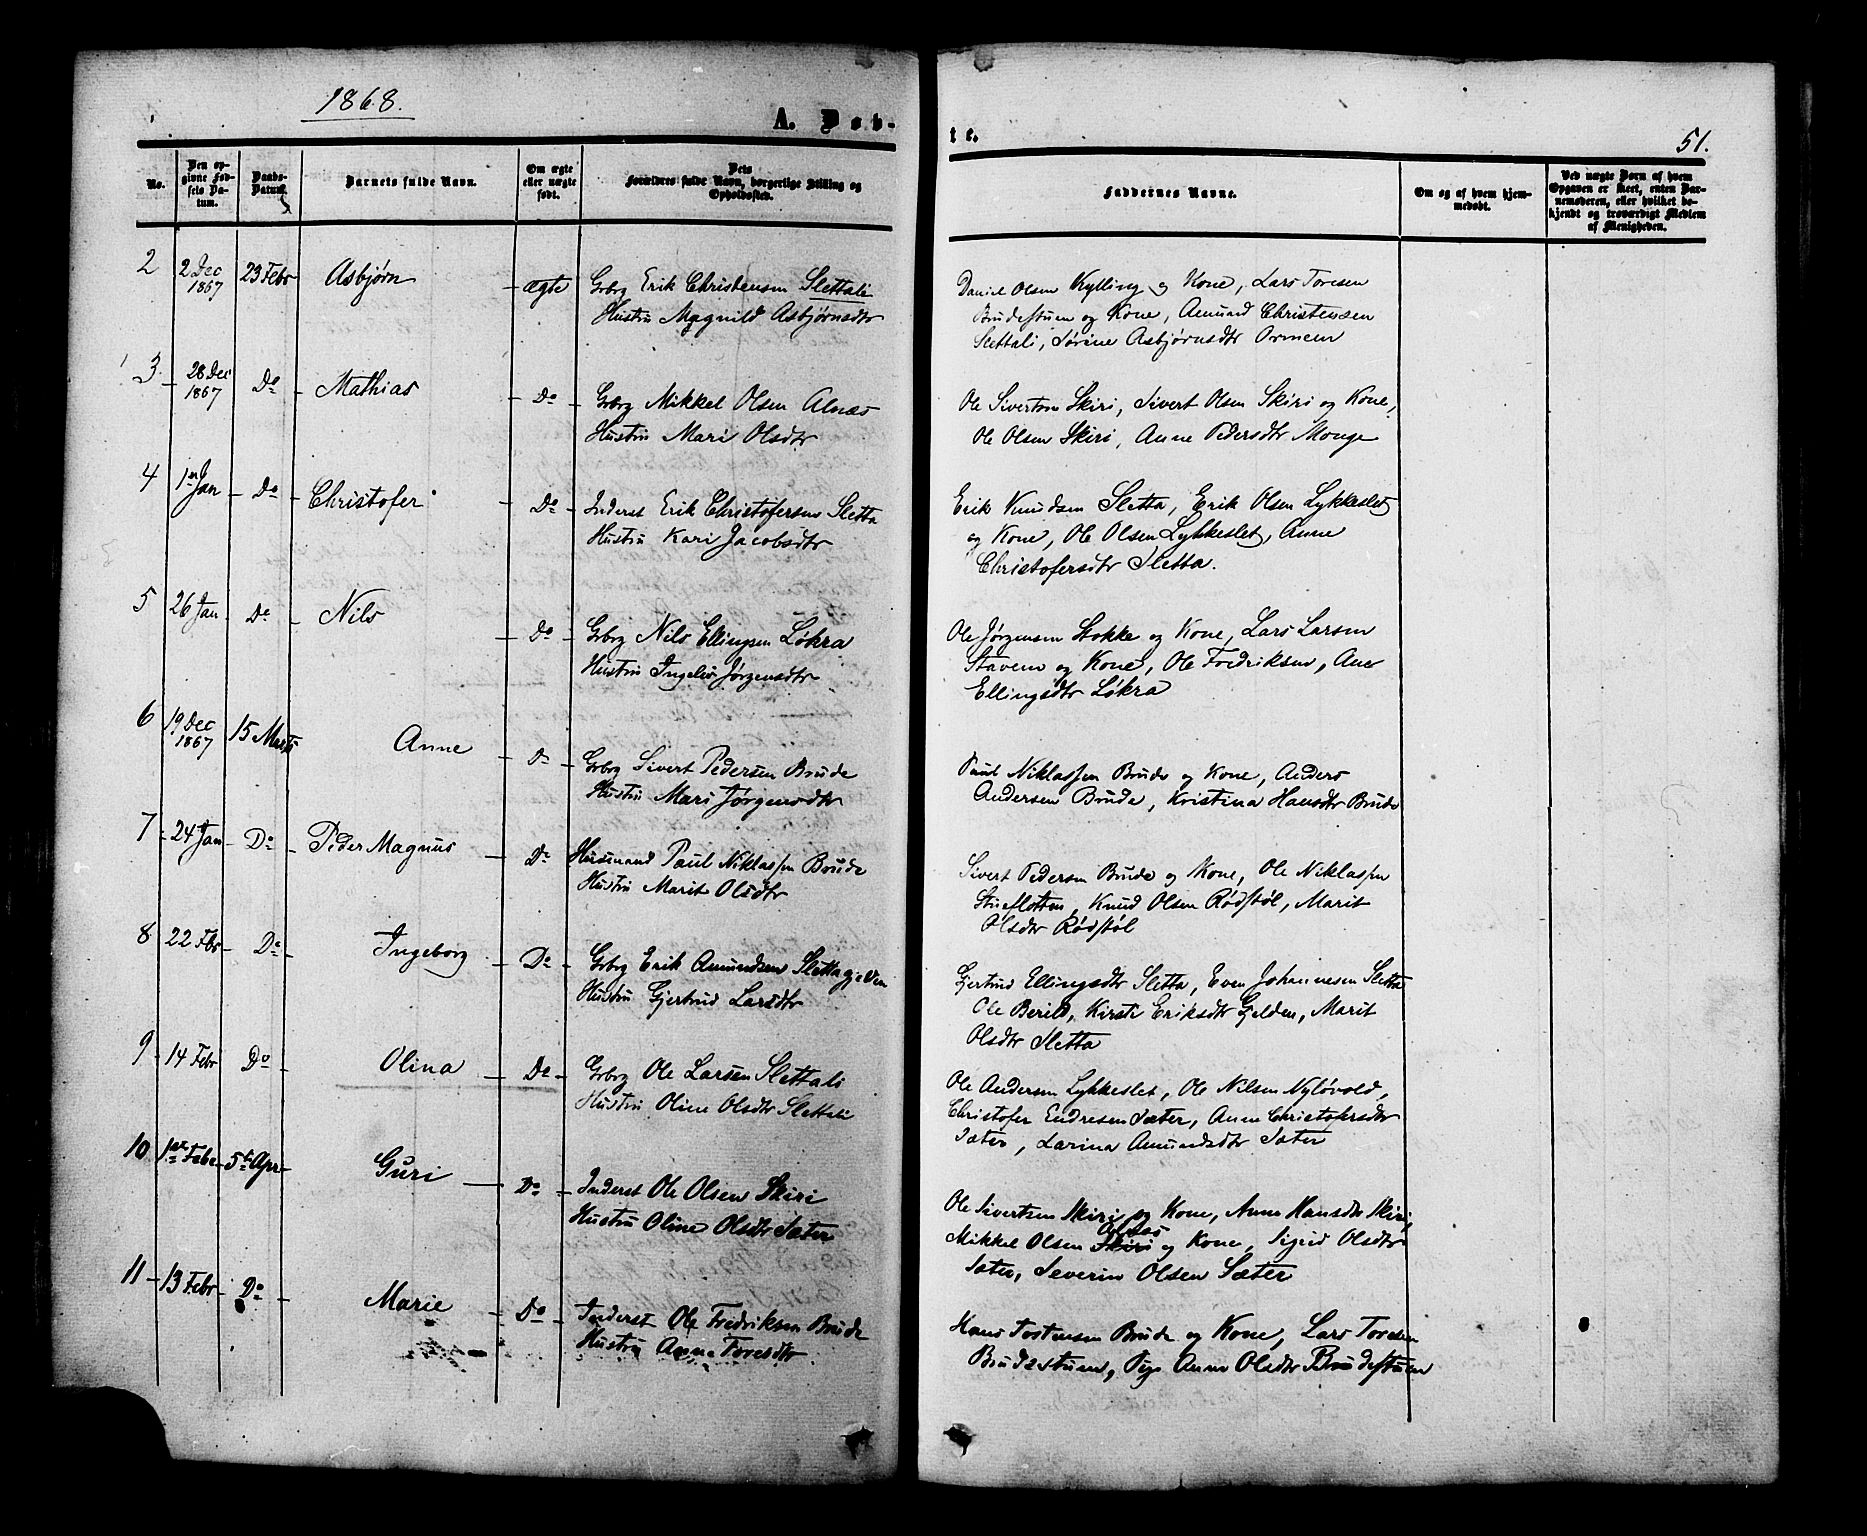 1868.
A. Døb-
No.
Den op-
givne Fød-
sels Da-
tum.
Daabs-
Datum.
Barnets fulde Navn.
Om ægte
eller uægte
født.
Dets
Forældres fulde Navn, borgerlige Stilling og
Opholdssted.
2 2 Dec 1867 23 Febr Asbjørn ægte Grbrg Erik Christensen Slettali
Hustru Magnild Asbjørnsdtr
3 28 Dec 1867 Do Mathias Do Grbrg Mikkel Olsen Alnæs
Hustru Mari Olsdtr
4 1ste Jan Do Christofer Do Inderst Erik Christofersen Sletta
Hustru Kari Jacobsdtr
5 26 Jan Do Nils Do Grbrg Nils Ellingsen Løkra
Hustru Ingeliv Jørgensdtr
6 19 Dec 1867 15 Marts Anne Do Grbrg Sivert Pedersen Brude
Hustru Mari Jørgensdtr
7 24 Jan Do Peder Magnus Do Husmand Paul Niklassen Brude
Hustru Marit Olsdtr
8 22 Febr Do Ingeborg Do Grbrg Erik Amundsen Slettagjelden
Hustru Gjertrud Larsdtr
9 14 Febr Do Olina Do Grbrg Ole Larsen Slettali
Hustru Oline Olsdtr Slettali
10 1ste Febr 5te Apr Guri Do Inderst Ole Olsen Skiri
Hustru Oline Olsdtr Sæter
11 13 Febr Do Marie Do Inderst Ole Fredriksen Brude
Hustru Anne Toresdtr
te.
51.
Faddernes Navne.
Om og af hvem hjem-
medøbt.
Ved uægte Born af hvem
Opgaven er skeet, enten Bar-
nemoderen, eller hvilket be-
kjendt og troværdigt Medlem
af Menigheden.
Daniel Olsen Kylling og Kone, Lars Toresen
Brudestuen og Kone, Amund Christensen
Slettali, Sørine Asbjørnsdtr Ormem
Ole Sivertsen Skiri, Sivert Olsen Skiri og Kone,
Ole Olsen Skiri, Anne Pedersdtr Monge
Erik Knudsen Sletta, Erik Olsen Lykkeslet
og Kone, Ole Olsen Lykkeslet, Anne
Christofersdtr Sletta.
Ole Jørgensen Stokke og Kone, Lars Larsen
Stavem og Kone, Ole Fredriksen, Ane
Ellingsdtr Løkra
Paul Niklassen Brude og Kone, Anders
Andersen Brude, Kristina Hansdtr Brude
Sivert Pedersen Brude og Kone, Ole Niklassen
Stueflotten, Knud Olsen Rødstøl, Marit
Olsdtr Rødstøl
Gjertrud Ellingsdtr Sletta, Even Johannesen Sletta
Ole Berild, Kirsti Eriksdtr Gjelden, Marit
Olsdtr Sletta
Ole Andersen Lykkeslet, Ole Nilsen Nyløvold,
Christofer Endresen Sæter, Anne Christofersdtr
Sæter, Larina Amundsdtr Sæter
Ole Sivertsen Skiri og Kone, Anne Hansdtr Skiri,
Alnæs
Mikkel Olsen Skiri og Kone, Sigrid Olsdtr
Sæter, Severin Olsen Sæter
Hans Tostensen Brude og Kone, Lars Toresen
Brudestuen, Pige Anne Olsdtr Brudestuen